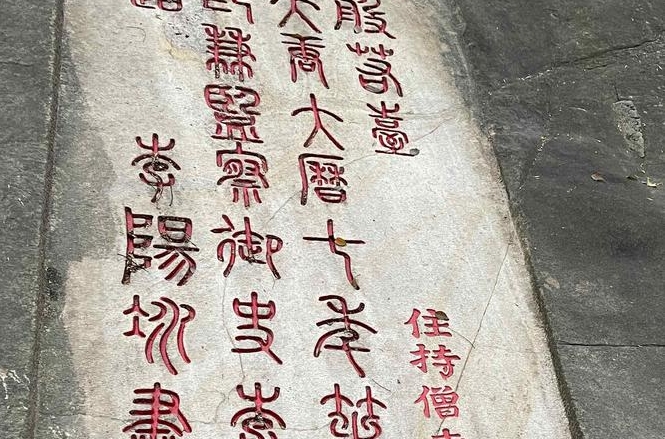 住持僧
般若臺
大唐大曆七年著
兼監察御史李
李陽冰書